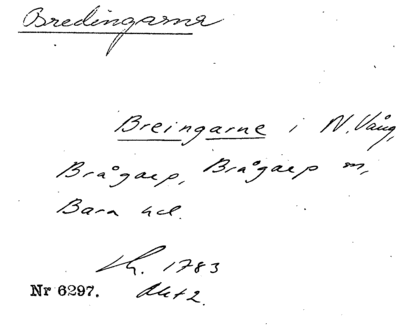 Bredingarna
Breingarne i N. Vång,
Brågarp, Brågarp sn,
Bara hd.
Lh. 1783
Nr 6297. Akt 2.